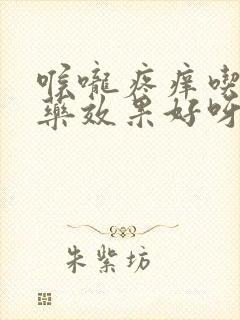 喉嚨疼痒喫
藥效果好呀
朱紫坊